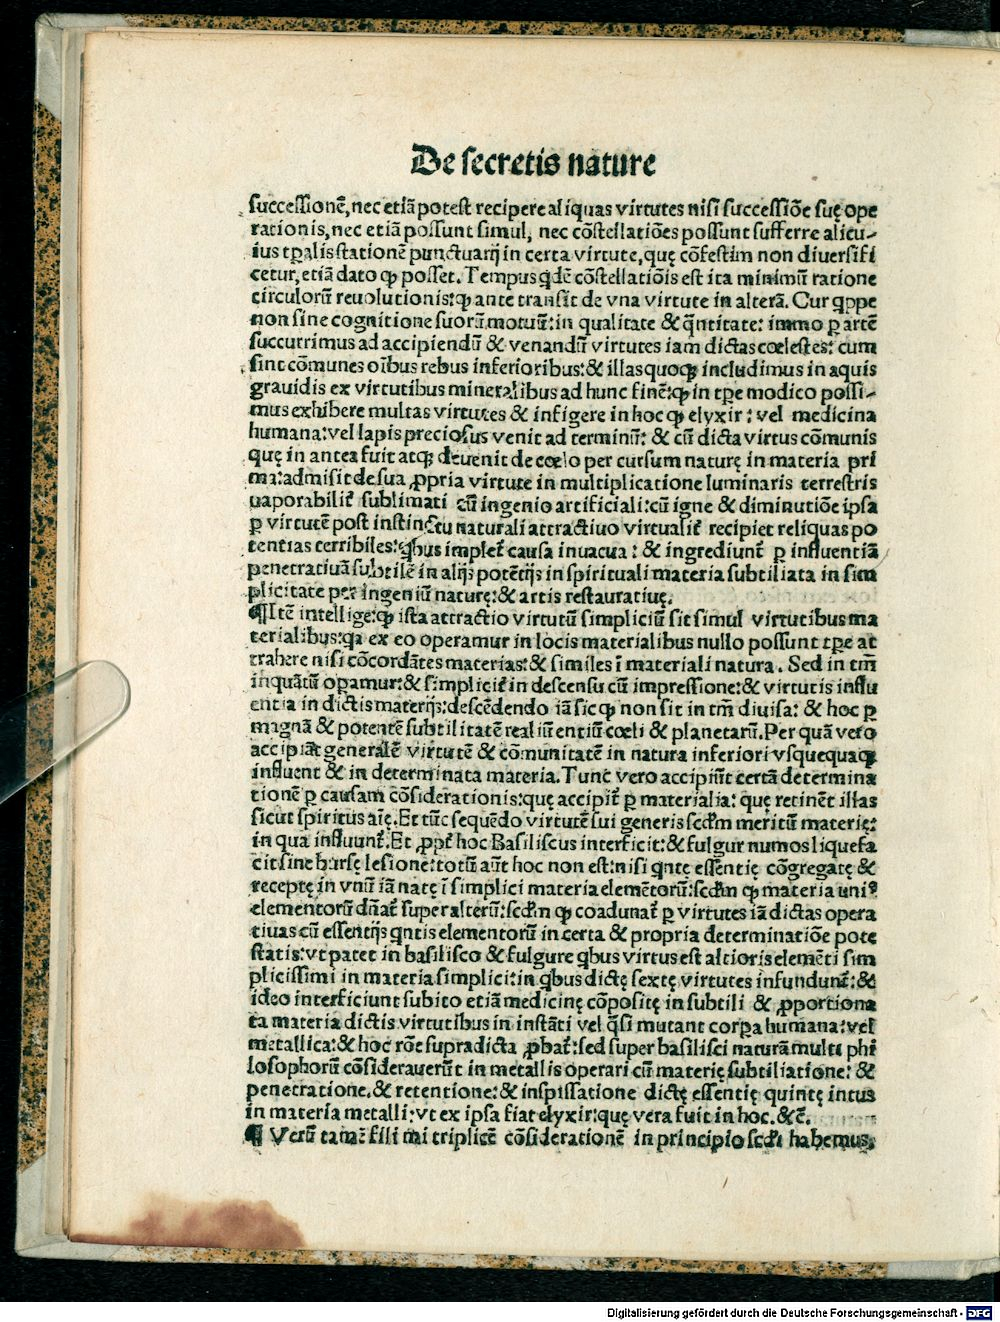 De secretis nature
successionē, nec etiā potest recipere aliquas virtutes nisi successiōe suę ope
rationis, nec etiā possunt simul, nec cōstellatiōes possunt sufferre alicu-
ius tꝑalis stationē punctuarij in certa virtute, quę cōfestim non diversifi
cetur, etiā dato ꝙ posset. Tempus qdē cōstellatiōis est ita minimū ratione
circulorū reuolutionis: ꝙ ante transit de vna virtute in alterā. Cur qppe
non sine cognitione suorū motuū: in qualitate & q̄ntitate: immo ꝑ artē
succurrimus ad accipiendū & venandū virtutes iam dictas cœlestes: cum
sint cōmunes oībus rebus inferioribus: & illas quoqꝫ includimus in aquis
grauidis ex virtutibus mineralibus ad hunc finē: ꝙ in tꝑe modico possi-
mus exhibere multas virtutes & infigere in hoc ꝙ elyxir: vel medicina
humana: vel lapis preciosus venit ad terminū: & cū dicta virtus cōmunis
quę in antea fuit atqꝫ deuenit de cœlo per cursum naturę in materia pri
ma: admisit de sua ꝓpria virtute in multiplicatione luminaris terrestris
uaporabilit̄ sublimati cū ingenio artificiali: cū igne & diminutiōe ipsa
ꝑ virtutē post instinctu naturali attractiuo virtualit̄ recipiet reliquas po
tentias terribiles: qbus implet̄ causa in vacua: & ingrediunt̄ ꝑ influentiā
penetratiuā subtilē in alijs potētijs in spirituali materia subtiliata in sim
plicitate per ingeniū naturę: & artis restauratiuę.
¶Itē intellige: ꝙ ista attractio virtutū simpliciū sit simul virtutibus ma
terialibus: qa ex eo operamur in locis materialibus nullo possunt tꝑe at
trahere nisi cōcordātes materias: & similes ī materiali natura. Sed in tm̄
inquātū oꝑamur: & simplicit̄ in descensu cū impressione: & virtutis influ
entia in dictis materijs: descēdendo iā sic ꝙ non sit in tm̄ diuisa: & hoc ꝑ
magnā & potentē subtilitatē realiū entiū cœli & planetarū. Per quā vero
accipiāt generalē virtutē & cōmunitatē in natura inferiori vsquequaqꝫ
influent & in determinata materia. Tunc vero accipiūt certā determina
tionē ꝑ causam cōsiderationis: quę accipit̄ ꝑ materialia: quę retinēt illas
sicut spiritus aīę. Et tūc sequēdo virtutē sui generis scd̄m meritū materię:
in qua influunt̄. Et ꝓpt̄ hoc Basiliscus interficit: & fulgur numos liquefa
cit sine bursę lesione: totū aūt hoc non est: nisi qntę essentię cōgregatę &
receptę in vnū iā natę ī simplici materia elemētorū: scd̄m ꝙ materia uniꝰ
elementorū dn̄at̄ super alterū: scd̄m ꝙ coadunat̄ ꝑ virtutes iā dictas opera
tiuas cū essentijs qntis elementorū in certa & propria determinatiōe pote
statis: vt patet in basilisco & fulgure qbus virtus est altioris elemēti sim
plicissimi in materia simplici: in qbus dictę sextę virtutes infundunt̄: &
ideo interficiunt subito etiā medicinę cōpositę in subtili & ꝓportiona
ta materia dictis virtutibus in instāti vel q̄si mutant corꝑa humana: vel
metallica: & hoc rōe supradicta ꝓbat̄: sed super basilisci naturā multi phi
losophorū cōsiderauerūt in metallis operari cū materię subtiliatione: &
penetratione, & retentione: & inspissatione dictę essentię quintę intus
in materia metalli: vt ex ipsa fiat elyxir: quę vera fuit in hoc. &c̄.
¶ Verū tamē fili mi triplicē cōsiderationē in principio scd̄i habemus.
Digitalisierung gefördert durch die Deutsche Forschungsgemeinschaft - DFG